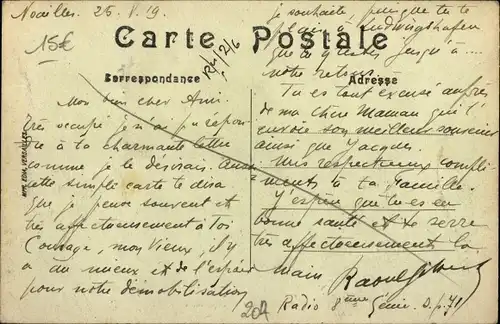 Noailles. 25. V. 19.
15€
Carte Postale
Correspondance
Adresse
Mon bien cher Ami.
Très occupé je n'ai pu répon-
dre à ta charmante lettre
comme je le désirais. Aussi
cette simple carte te dira
que je pense souvent et
très affectueusement à toi
Courage, mon vieux, il y
a du mieux et de l'espoir
pour notre démobilisation
je souhaite puisque tu te
plais à Ludwigshafen
que tu y restes jusqu'à ....
notre retour.
Tu es tout excusé auprès
de ma chère Maman qui t'
envoie son meilleur souvenir
ainsi que Jacques.
Mes respectueux compli-
ments à ta famille.
J'espère que tu es en
bonne santé et te serre
très affectueusement la
main Raoul
Radio 8ème Génie. D.p. 71
207